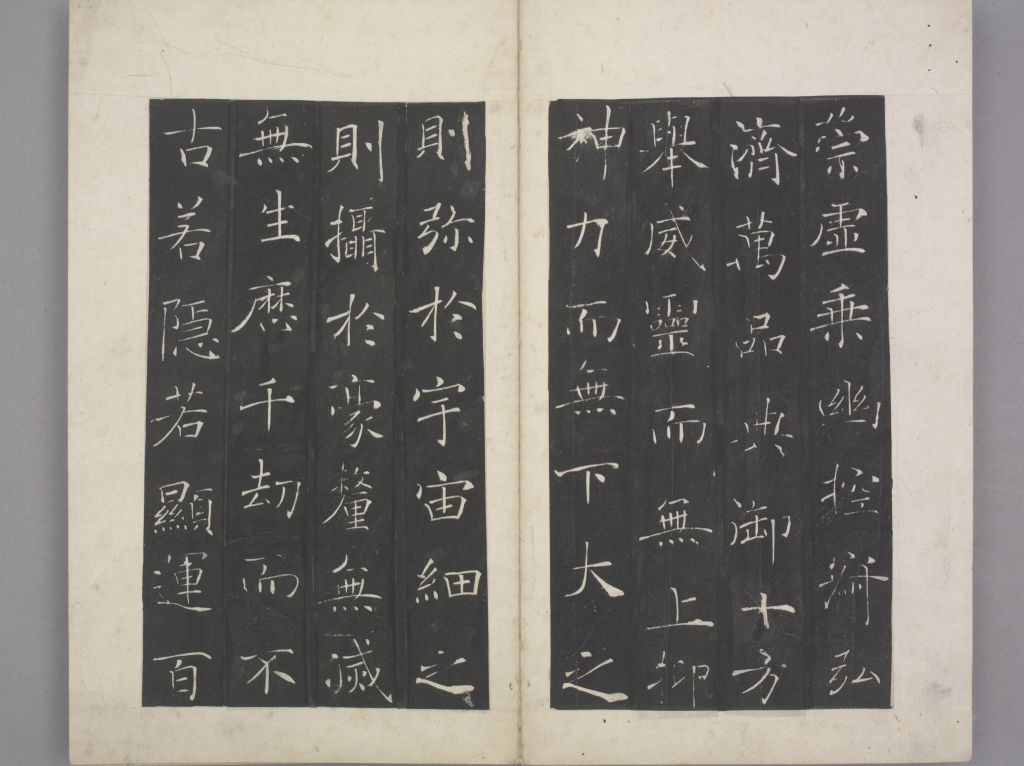 崇虛乘幽控寂弘
濟萬品典御十方
舉威靈而無上抑
神力而無下大之
則弥於宇宙細之
則攝於豪釐無滅
無生歷千劫而不
古若隱若顯運百